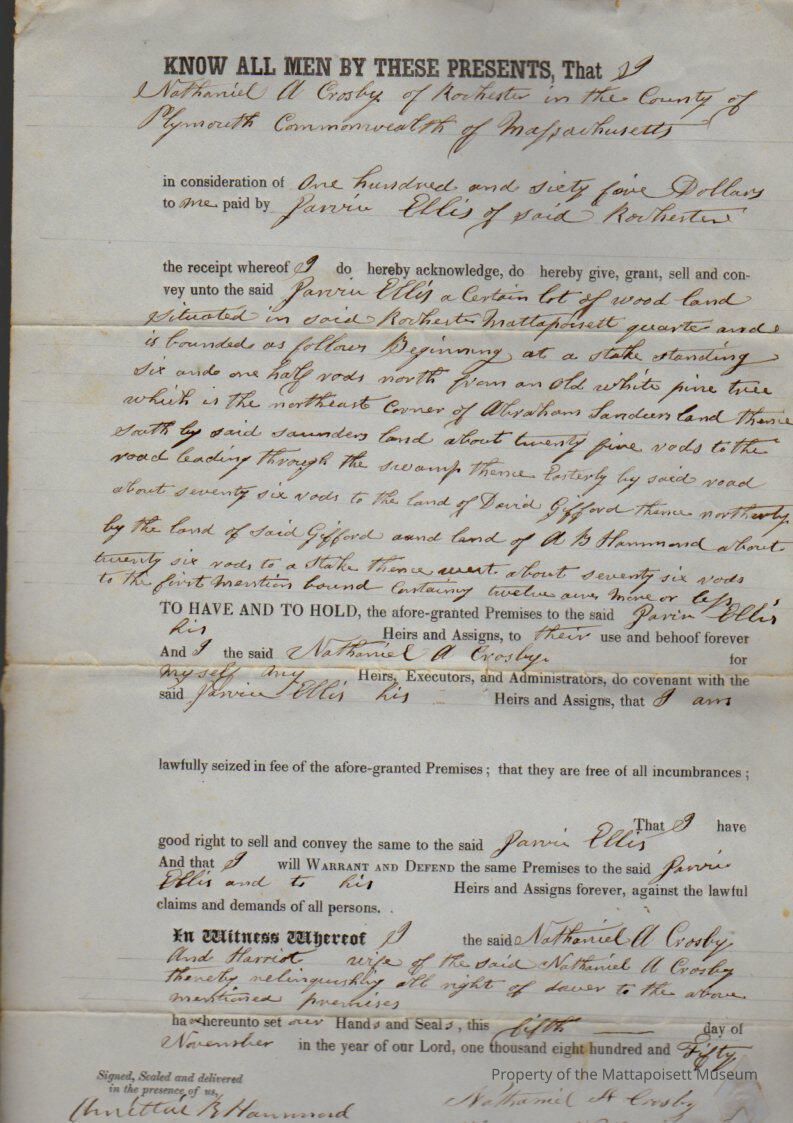 KNOW ALL MEN BY THESE PRESENTS, That I
Nathaniel A Crosby of Rochester in the County of
Plymouth Commonwealth of Massachusetts
in consideration of One hundred and sixty five Dollars
to me paid by Jarvis Ellis of said Rochester
the receipt whereof I do hereby acknowledge, do hereby give, grant, sell and con-
vey unto the said Jarvis Ellis a Certain lot of wood land
situated in said Rochester Mattapoisett quarter and
is bounded as follows Beginning at a stake standing
six and one half rods north from an old white pine tree
which is the northeast corner of Abraham Sanders land thence
south by said saunders land about twenty five rods to the
road leading through the swamp thence Easterly by said road
about seventy six rods to the land of David Gifford thence northerly
by the land of said Gifford and land of A B Hammond about
twenty six rods to a stake thence west about seventy six rods
to the first mention bound Containing twelve acres more or less
TO HAVE AND TO HOLD, the afore-granted Premises to the said Jarvis Ellis
his Heirs and Assigns, to their use and behoof forever
And I the said Nathaniel A Crosby for
myself my Heirs, Executors, and Administrators, do covenant with the
said Jarvis Ellis his Heirs and Assigns, that I am
lawfully seized in fee of the afore-granted Premises; that they are free of all incumbrances;
That I have
good right to sell and convey the same to the said Jarvis Ellis
And that I will WARRANT AND DEFEND the same Premises to the said Jarvis
Ellis and to his Heirs and Assigns forever, against the lawful
claims and demands of all persons.
In Witness Whereof I the said Nathaniel A Crosby
And Harriot wife of the said Nathaniel A Crosby
thereby relinquishing all right of dower to the above
mentioned premises
have hereunto set our Hands and Seals, this fifth day of
November in the year of our Lord, one thousand eight hundred and Fifty
Signed, Sealed and delivered
in the presence of us,
Property of the Mattapoisett Museum
B Hammond
Nathaniel A Crosby